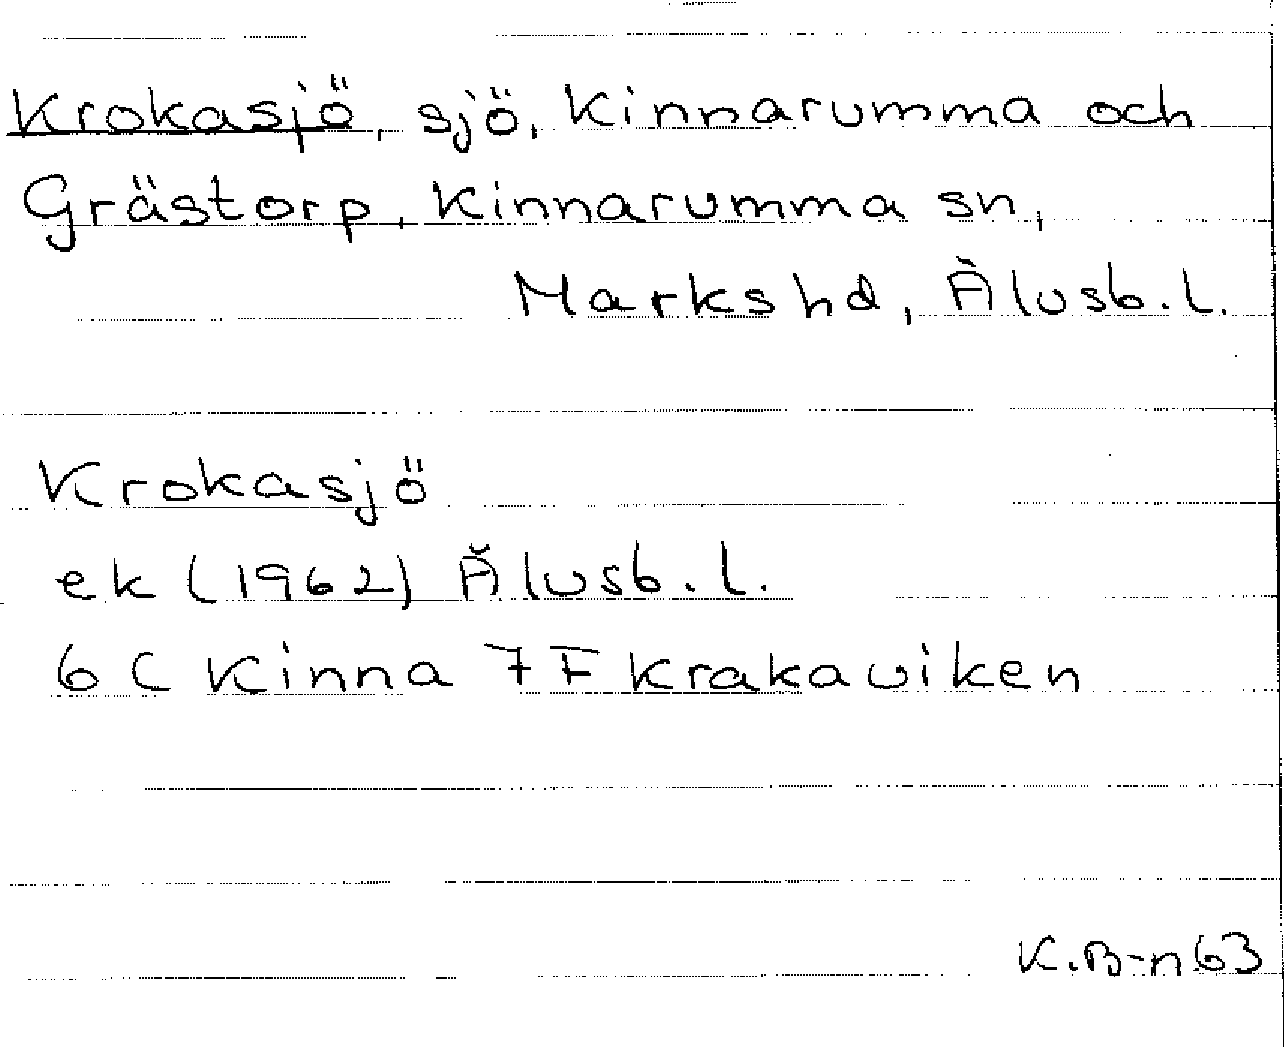 Krokasjö, sjö, Kinnarumma och
Grästorp, Kinnarumma sn,
Marks hd, Älvsb. l.
Krokasjö
ek (1962) Älvsb. l.
6 C Kinna 7 F Krakaviken
K.B-n 63